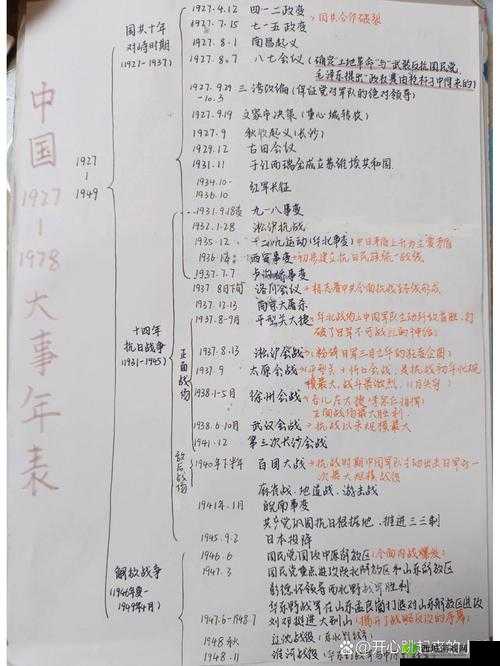 中国1927-1978大事年表
1927
-
1949
国共十年
对峙时期
(1927-1937)
1927.4.12 四一二政变
1927.7.15 七一五政变
→国共合作破裂
1927.8.1 南昌起义
1927.8.7 八七会议(确定"土地革命"与"武装反抗国民党
毛泽东提出"政权是由枪杆子中得来的)
1927.9.29
-10.3 三湾改编(保证党对军队的绝对领导)
1927.9.19 文家市决策(重心城转农)
1927.9 秋收起义(长沙)
1929.12 古田会议
1931.11 于江西瑞金成立苏维埃共和国
1934.10-
1936.10 红军长征
十四年
抗日战争
(1931-1945)
1931.9.18 九一八事变
1932.1.28 淞沪抗战
1935.12 一二·九运动(华北事变)中日矛盾上升为主要矛盾
1936.12 西安事变→初步建立抗日民族统一战线
1937.7.7 卢沟桥事变
1937.8下旬 洛川会议→标志着中共全面抗战路线形成
1937.12.13 南京大屠杀
正面战场
1937.8-9月 平型关大捷→华北战场上中国军队主动歼敌首胜,打
破了日军不可战胜的神话
1937.8.13 淞沪会战→粉碎日军三月亡华的狂妄企图
1937.9 太原会战→平型关+忻口会战,是抗战初华北规
模最大,战斗最激烈,
1938.1-5月 徐州会战→台儿庄大捷(李宗仁指挥)
正面战场最大胜利.
1938.6-10月 武汉会战→抗战以来规模最大
1941.12 第三次长沙会战
敌后战场
1940年下半年 百团大战→抗战时期中国军队主动出击日军
一次最大规模战役
麻雀战、地道战、游击战
1941年.1月 皖南事变
共产党巩固抗日根据地、推进三三制
1945.9.2 日本投降
解放战争
(1946年夏-
1949年4月)
1946.6 国民党围攻中原解放区(全面内战爆发)
1947.3 国民党重点进攻陕北解放区和山东解放区
彭德怀领导西北野战军胜利
华东野战军在山东孟良崮打退对山东解放区进攻
1947.6-1948.7 刘邓挺进大别山→揭开了战略反攻的序幕
1948秋 辽沈战役
1948.11 淮海战役
@开心跳起来的小
西城游戏网